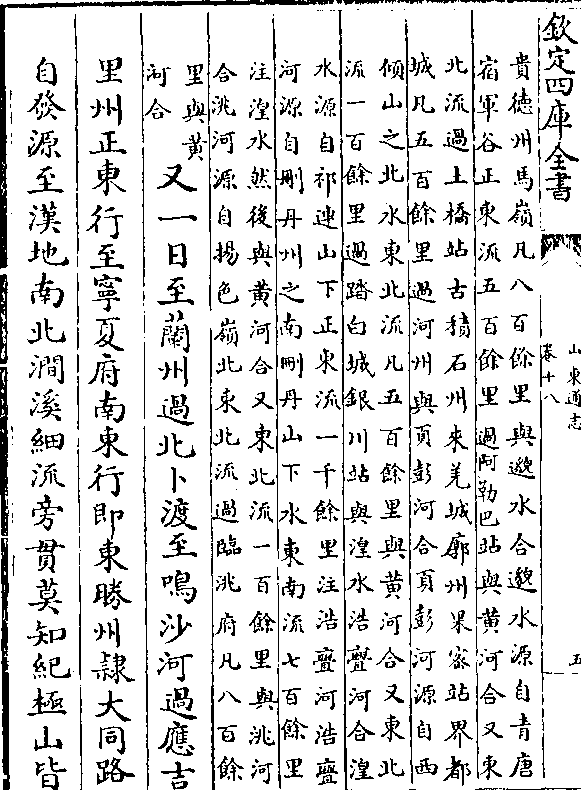 欽定四庫全書
山東通志
卷十八
五
貴德州馬嶺凡八百餘里與邈水合邈水源自青唐
宿軍谷正東流五百餘里過阿勒巴站與黃河合又東
北流過土橋站古積石州来羌城廓州果宻站界都
城凡五百餘里過河州與頁彭河合頁彭河源自西
傾山之北水東北流凡五百餘里與黃河合又東北
流一百餘里過踏白城銀川站與湟水浩亹河合湟
水源自祁連山下正東流一千餘里注浩亹河浩亹
河源自刪丹州之南刪丹山下水東南流七百餘里
注湟水然後與黃河合又東北流一百餘里與洮河
合洮河源自揚色嶺北東北流過臨洮府凡八百餘
里與黃
河合
又一日至蘭州過北卜渡至鳴沙河過應吉
里州正東行至寧夏府南東行即東勝州隷大同路
自發源至漢地南北澗溪細流旁貫莫知紀極山皆